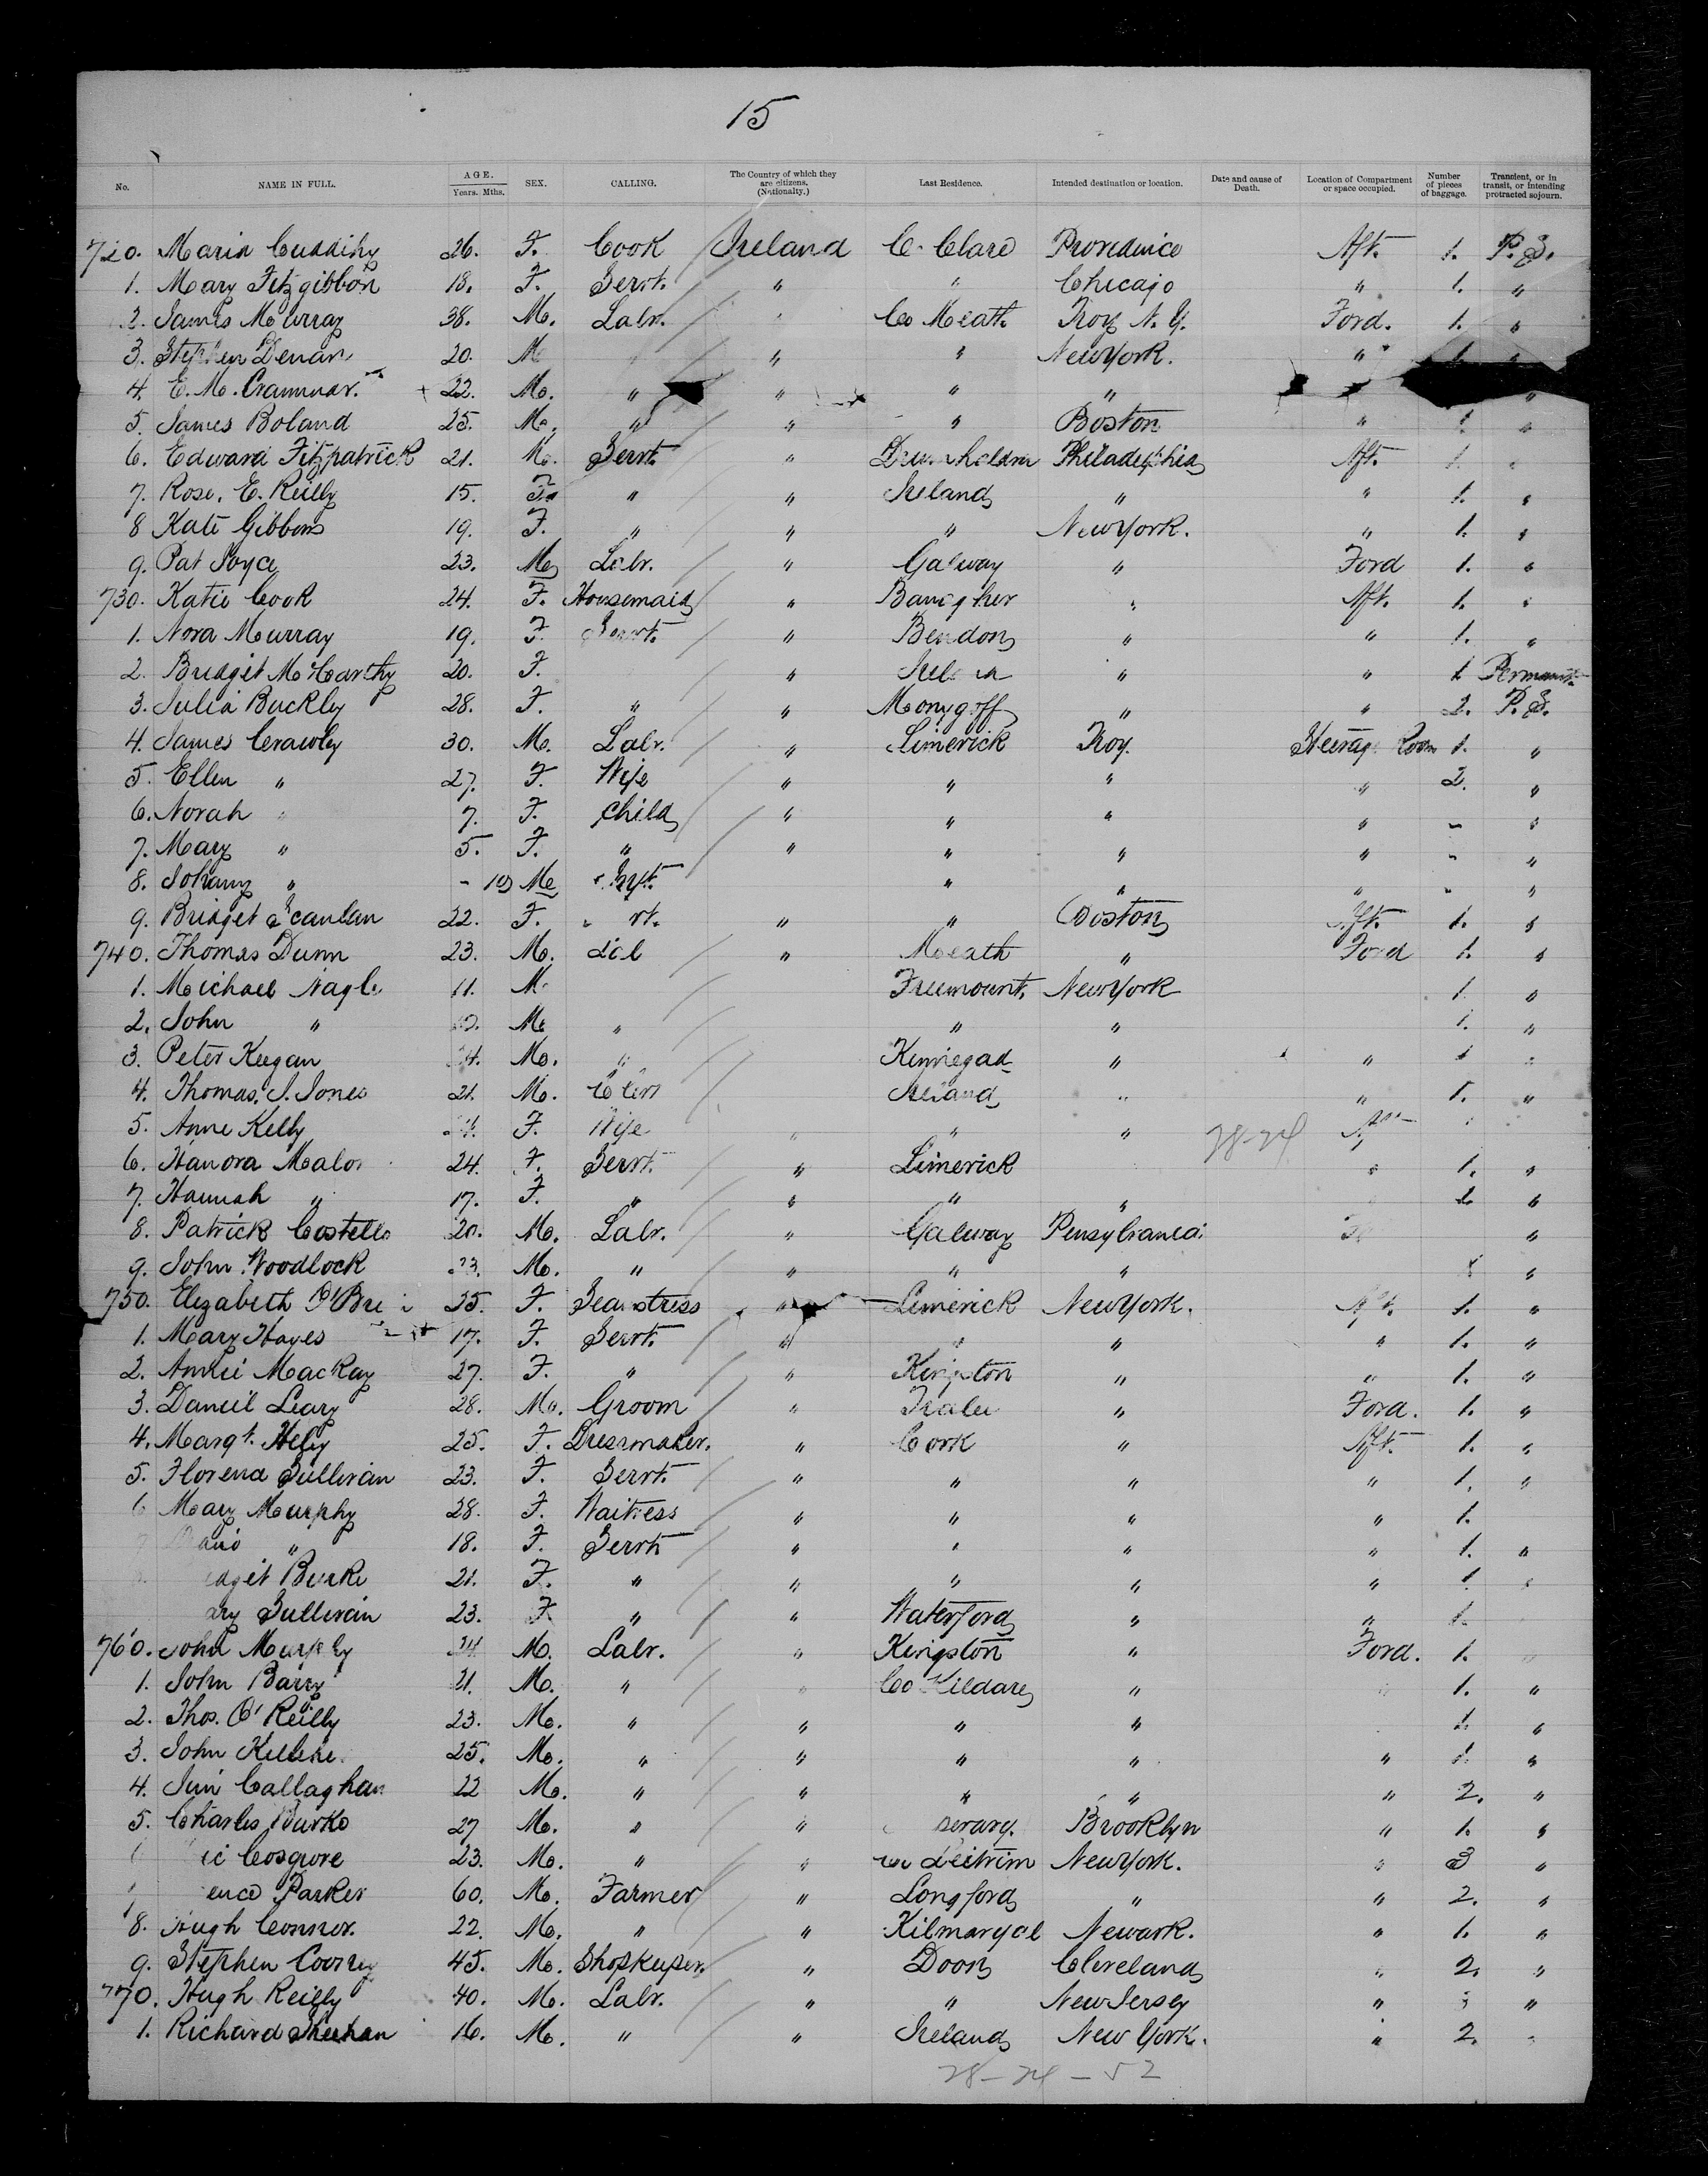 15
No. NAME IN FULL. AGE. Years. Mths. SEX. CALLING. The Country of which they are citizens. (Nationalty.) Last Residence. Intended destination or location. Date and cause of Death. Location of Compartment or space occupied. Number of pieces of baggage. Transient, or in transit, or intending protracted sojourn.
720. Maria Cuddihy 26. F. Cook Ireland C. Clare Providence Aft. 1. P.S.
1. Mary Fitzgibbon 18. F. Servt. " " Chicago " 1. "
2. James Murray 38. M. Labr. " Co Meath Troy N.Y. Ford. 1. "
3. Stephen 20. M " " New York. " 1. "
4. E. M. 22. M. " " " " "
5. James Boland 25. M. " " " Boston " 1. "
6. Edward Fitzpatrick 21. M. Servt. " Philadelphia Aft. 1. "
7. Rose. E. Reilly 15. F. " " Ireland " " 1. "
8 Kate Gibbons 19. F. " " " New York. " 1. "
9. Pat Joyce 23. M Labr. " Galway " Ford 1. "
730. Katie Cook 24. F. Housemaid " Banagher " Aft. 1. "
1. Nora Murray 19. F. Servt. " Bendon " " 1. "
2. Bridget McCarthy 20. F. " " " 1
3. Julia Buckley 28. F. " " Monygoff " " 2. P.S.
4. James Crawley 30. M. Labr. " Limerick Troy. Steerage Room 1. "
5. Ellen " 27. F. Wife " " " " 2. "
6. Norah " 7. F. Child " " " " - "
7. Mary " 5. F. " " " " " - "
8. Johany " - 10 M " " " - "
9. Bridget Scanlan 22. F. " " Boston Aft. 1. "
740. Thomas Dunn 23. M. " Meath " Ford 1. "
1. Michael Nagle 11. M. Freemount. New York 1. "
2. John " M " " " 1. "
3. Peter Keegan M. " Kinnegad " " 1 "
4. Thomas. J. Jones 21. M. Ireland " " 1. "
5. Anne Kelly F. Wife " " " 28-24
6. Hanora 24. F. Servt. " Limerick " 1. "
7. Hannah " 17. F. " " " " "
8. Patrick Costello 20. M. Labr. " Galway Pensylvania "
9. John Woodlock 23. M. " " " " "
750. Elizabeth 25. F. Seamstress " Limerick New York. Aft. 1. "
1. Mary Hayes 17. F. Servt. " " " " 1. "
2. Annie Mackay 27. F. " " Kingston " " 1. "
3. Daniel Leary 28. M. Groom " Tralee " Ford. 1. "
4. Margt. Hely 25. F. Dressmaker. " Cork " Aft. 1. "
5. Florena Sullivan 23. F. Servt. " " " " 1. "
6 Mary Murphy 28. F. Waitress " " " " 1.
" 18. F. Servt " " " " 1. "
Burke 21. F. " " " " " 1 "
Sullivan 23. F " " Waterford " " 1.
760. John Murphy M. Labr. " Kingston " Ford. 1. "
1. John Barry 21. M. " " Co Kildare " 1. "
2. Thos. O'Reilly 23. M. " " " " 1. "
3. John 25. M. " " " " " 1. "
4. Jim Callaghan 22 M. " " " " " 2. "
5. Charles Burke 27 M. " " Brooklyn " 1. "
Cosgrove 23. M. " " Co Leitrim New York. " 3 "
Parker 60. M. Farmer " Longford " " 2. "
8. Hugh Connor. 22. M. " " Newark. " 1. "
9. Stephen 45. M. Shopkeeper. " Doon Cleveland " 2. "
770. Hugh Reilly 40. M. Labr. " " New Jersey " "
1. Richard Sheehan 16. M. " " Ireland New York. " 2. "
28-24-52